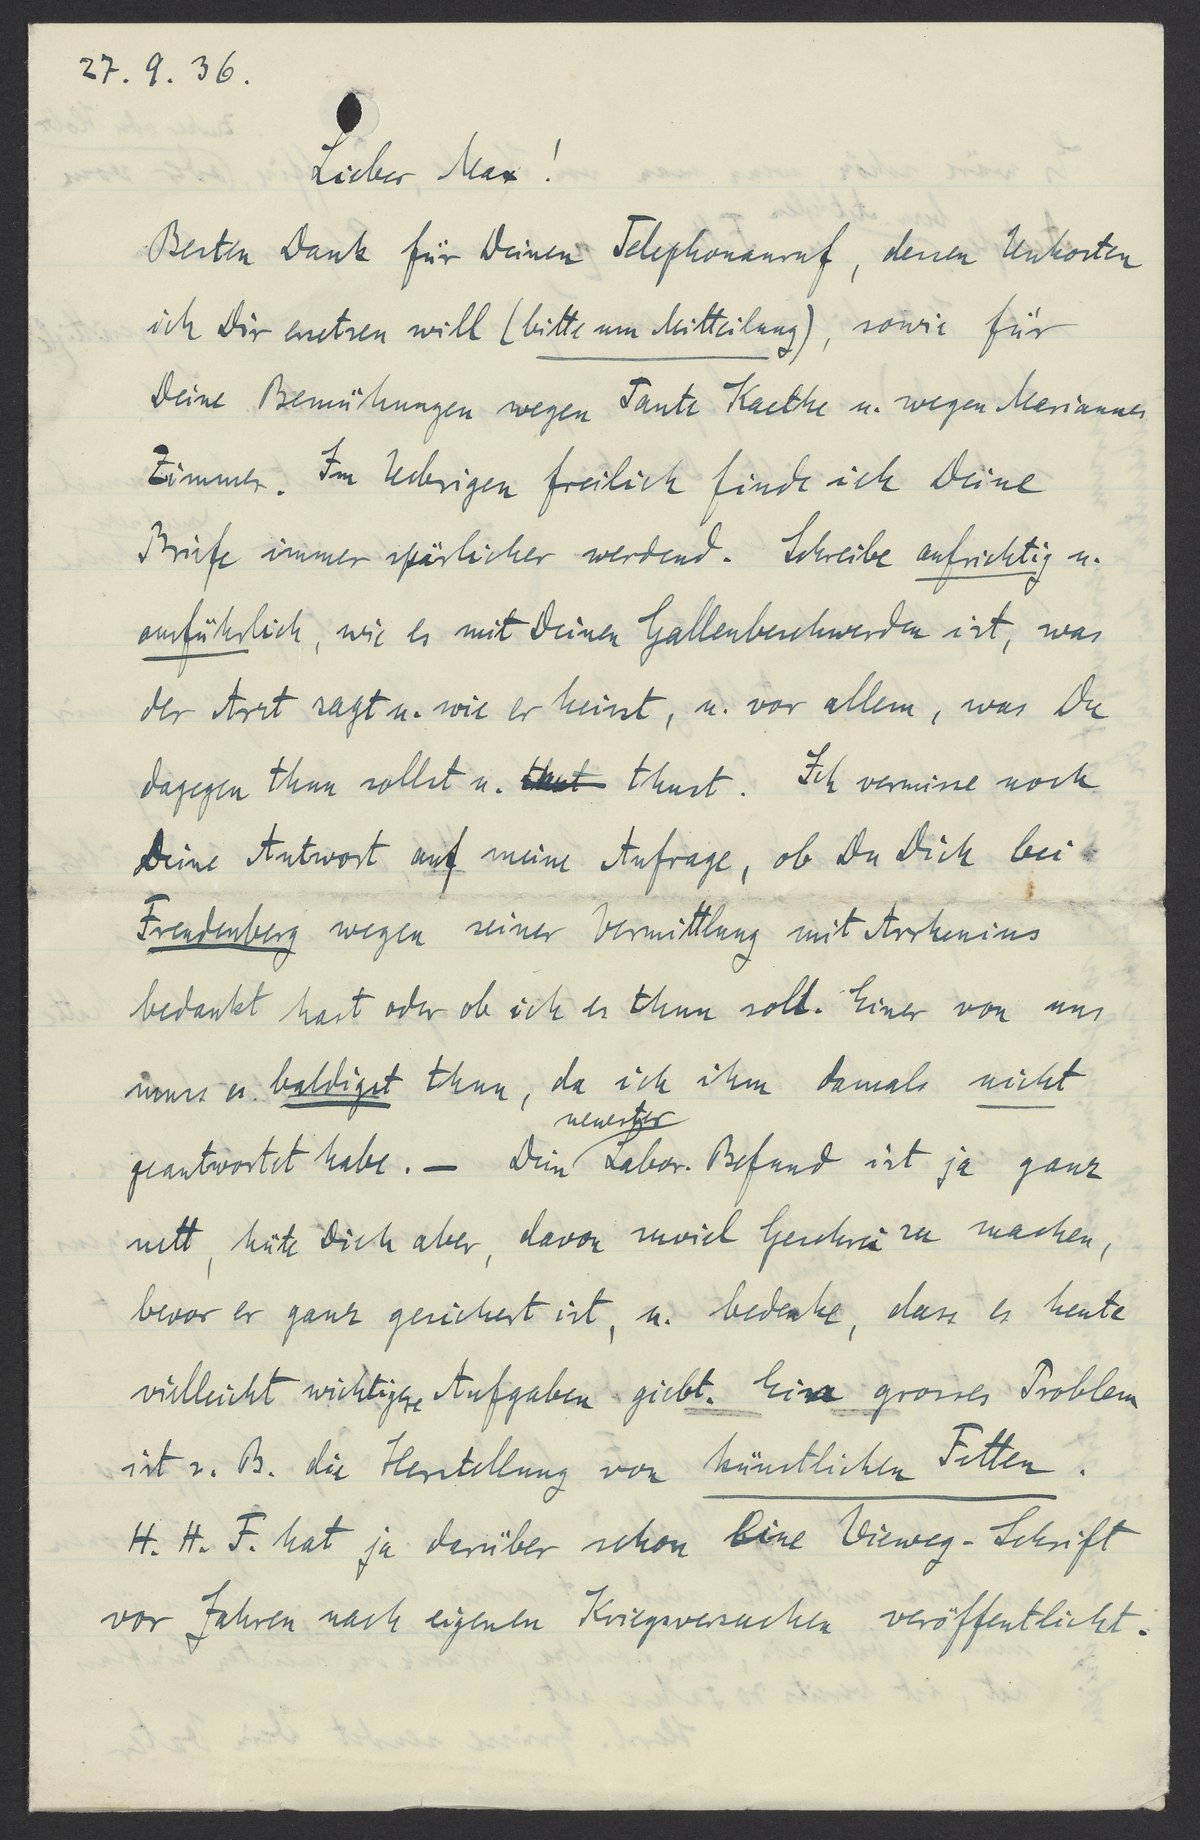 27. 9. 36.
Lieber Max!
Besten Dank für Deinen Telephonanruf, dessen Unkosten
ich Dir ersetzen will (bitte um Mitteilung), sowie für
Deine Bemühungen wegen Tante Kaethe u. wegen Mariannes
Zimmer. Im Uebrigen freilich finde ich Deine
Briefe immer spärlicher werdend. Schreibe aufrichtig u.
ausführlich, wie es mit Deinen Gallenbeschwerden ist, was
der Arzt sagt u. wie er heisst, u. vor allem, was Du
dagegen thun sollst u. thut thust. Ich vermisse noch
Deine Antwort auf meine Anfrage, ob Du Dich bei
Freudenberg wegen seiner Vermittlung mit Arrhenius
bedankt hast oder ob ich es thun soll. Einer von uns
muss es baldigst thun, da ich ihm damals nicht
neuester
geantwortet habe. — Dein Labor. Befund ist ja ganz
nett, hüte Dich aber, davon zuviel Geschrei zu machen,
bevor er ganz gesichert ist, u. bedenke, dass es heute
vielleicht wichtigere Aufgaben giebt. Ein grosses Problem
ist z. B. die Herstellung von künstlichen Fetten.
H. H. F. hat ja darüber schon eine Vieweg-Schrift
vor Jahren nach eigenen Kriegsversuchen veröffentlicht.